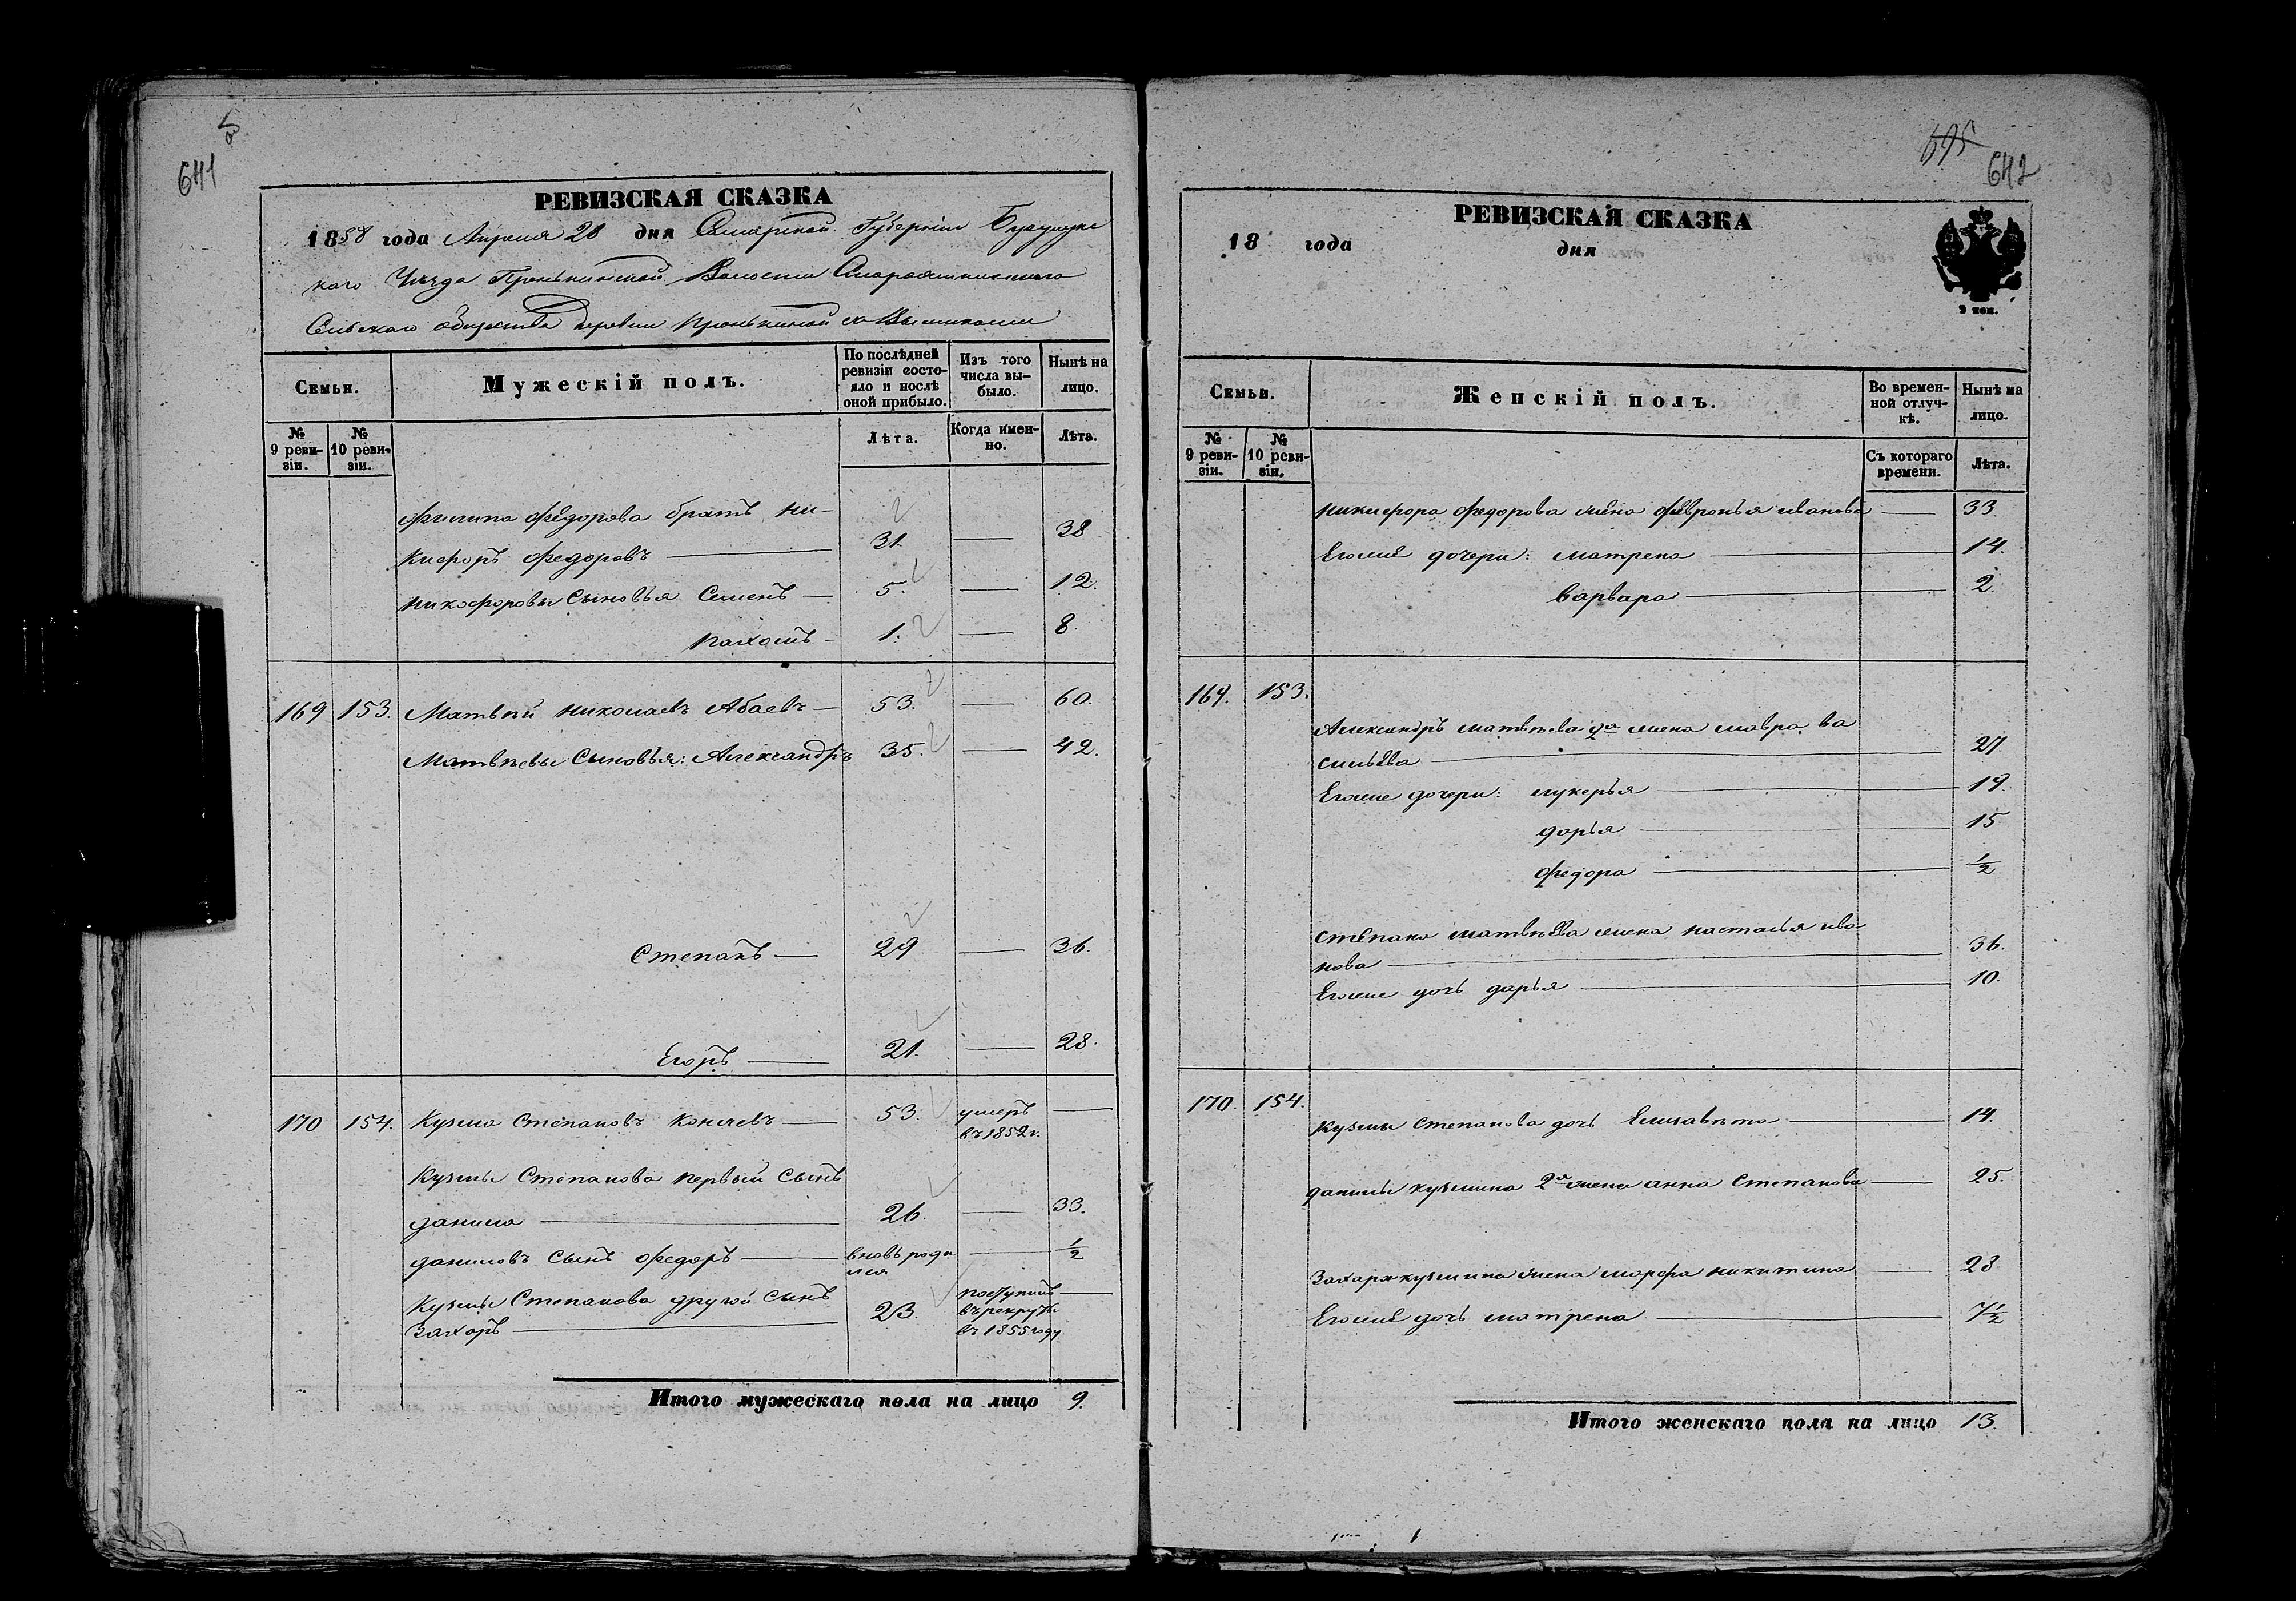 641
РЕВИЗСКАЯ СКАЗКА
1858 года Апреля 28 дня Самарской Губернiи Бузулукс
каго Уѣзда Пронькинской Волости
Сельскаго общества деревни Пронькиной
Семьи.
Мужескiй полъ.
По послѣдней ревизiи состояло и послѣ оной прибыло.
Изъ того числа выбыло.
Нынѣ на лицо.
№ 9 ревизiи.
№ 10 ревизiи.
Лѣта.
Когда именно.
Лѣта.
Филипа Федорова братъ Ни-
кифоръ Федоровъ 31. 38
Никофоровы Сыновья Семенъ 5. 12.
Пахомъ 1. 8.
169 153. Матвѣй Николаевъ Абаевъ 53. 60.
Матвѣевы Сыновья: Александръ 35. 42.
Степанъ 29 36.
Егоръ 21. 28.
170 154. Кузма Степановъ 53. умеръ
въ 1852 г.
Кузмы Степанова первый сынъ
данила 26. 33.
даниловъ сынъ Федоръ вновь роди
лся 1/2
Кузмы Степанова другой сынъ
Захаръ 23. поступилъ
въ рекруты
въ 1855 году
Итого мужескаго пола на лицо 9.
695
642
РЕВИЗСКАЯ СКАЗКА
18 года дня
Семьи.
Женскiй полъ.
Во временной отлучкѣ.
Нынѣ на лицо.
№ 9 ревизiи.
№ 10 ревизiи.
Съ котораго времени.
Лѣта.
Никифора Федорова жена Февронья иванова 33.
Егоже дочери: матрена 14.
варвара 2.
169. 153.
Александръ матвѣева 2я жена мавра ва
сильева 27
Егоже дочери: лукерья 19.
дарья 15
федора 1/2
степана матвѣева жена настасья ива
нова 36.
Егоже дочь дарья 10.
170. 154.
Кузмы степанова дочь Елизавета 14.
данилы кузмина 2я жена анна Степанова 25.
Захара кузмина жена марфа никитина 28
Егоже дочь матрена 7 1/2
Итого женскаго пола на лицо 13.